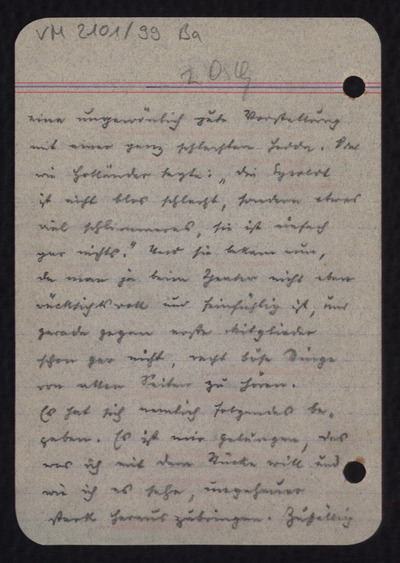 VM 2101/99 Ba
eine ungewönlich gute Vorstellung
mit einer ganz schlechten Hedda. Oder
wie Holländer sagte: „die Eysoldt
ist nicht blos schlecht, sondern etwas
viel schlimmeres, sie ist einfach
gar nichts." Und sie bekam nun,
da man ja beim Theater nicht eben
rücksichtsvoll und feinfühlig ist, und
gerade gegen erste Mitglieder
schon gar nicht, recht böse Dinge
von allen Seiten zu hören.
Es hat sich nemlich folgendes be-
geben. Es ist mir gelungen, das
was ich mit dem Stücke will und
wie ich es sehe, ungeheuer
stark herauszubringen. Zufällig